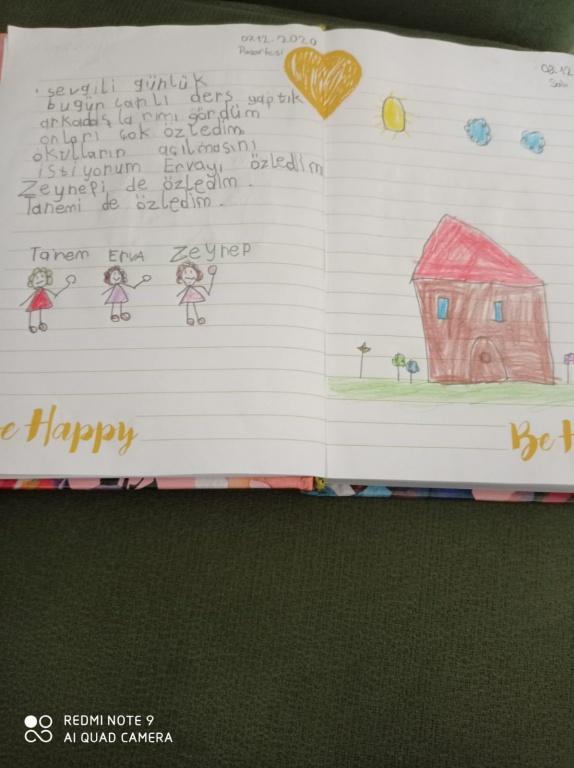 07.12.2020
Pazartesi
sevgili günlük
bugün canlı ders yaptık
arkadaşlarımı gördüm
onları çok özledim
okulların açılmasını
istiyorum Ervayı özledim
Zeynepi de özledim.
Tanemi de özledim.
Tanem Erva Zeynep
e Happy
08.12
Salı
Be H
REDMI NOTE 9
AI QUAD CAMERA